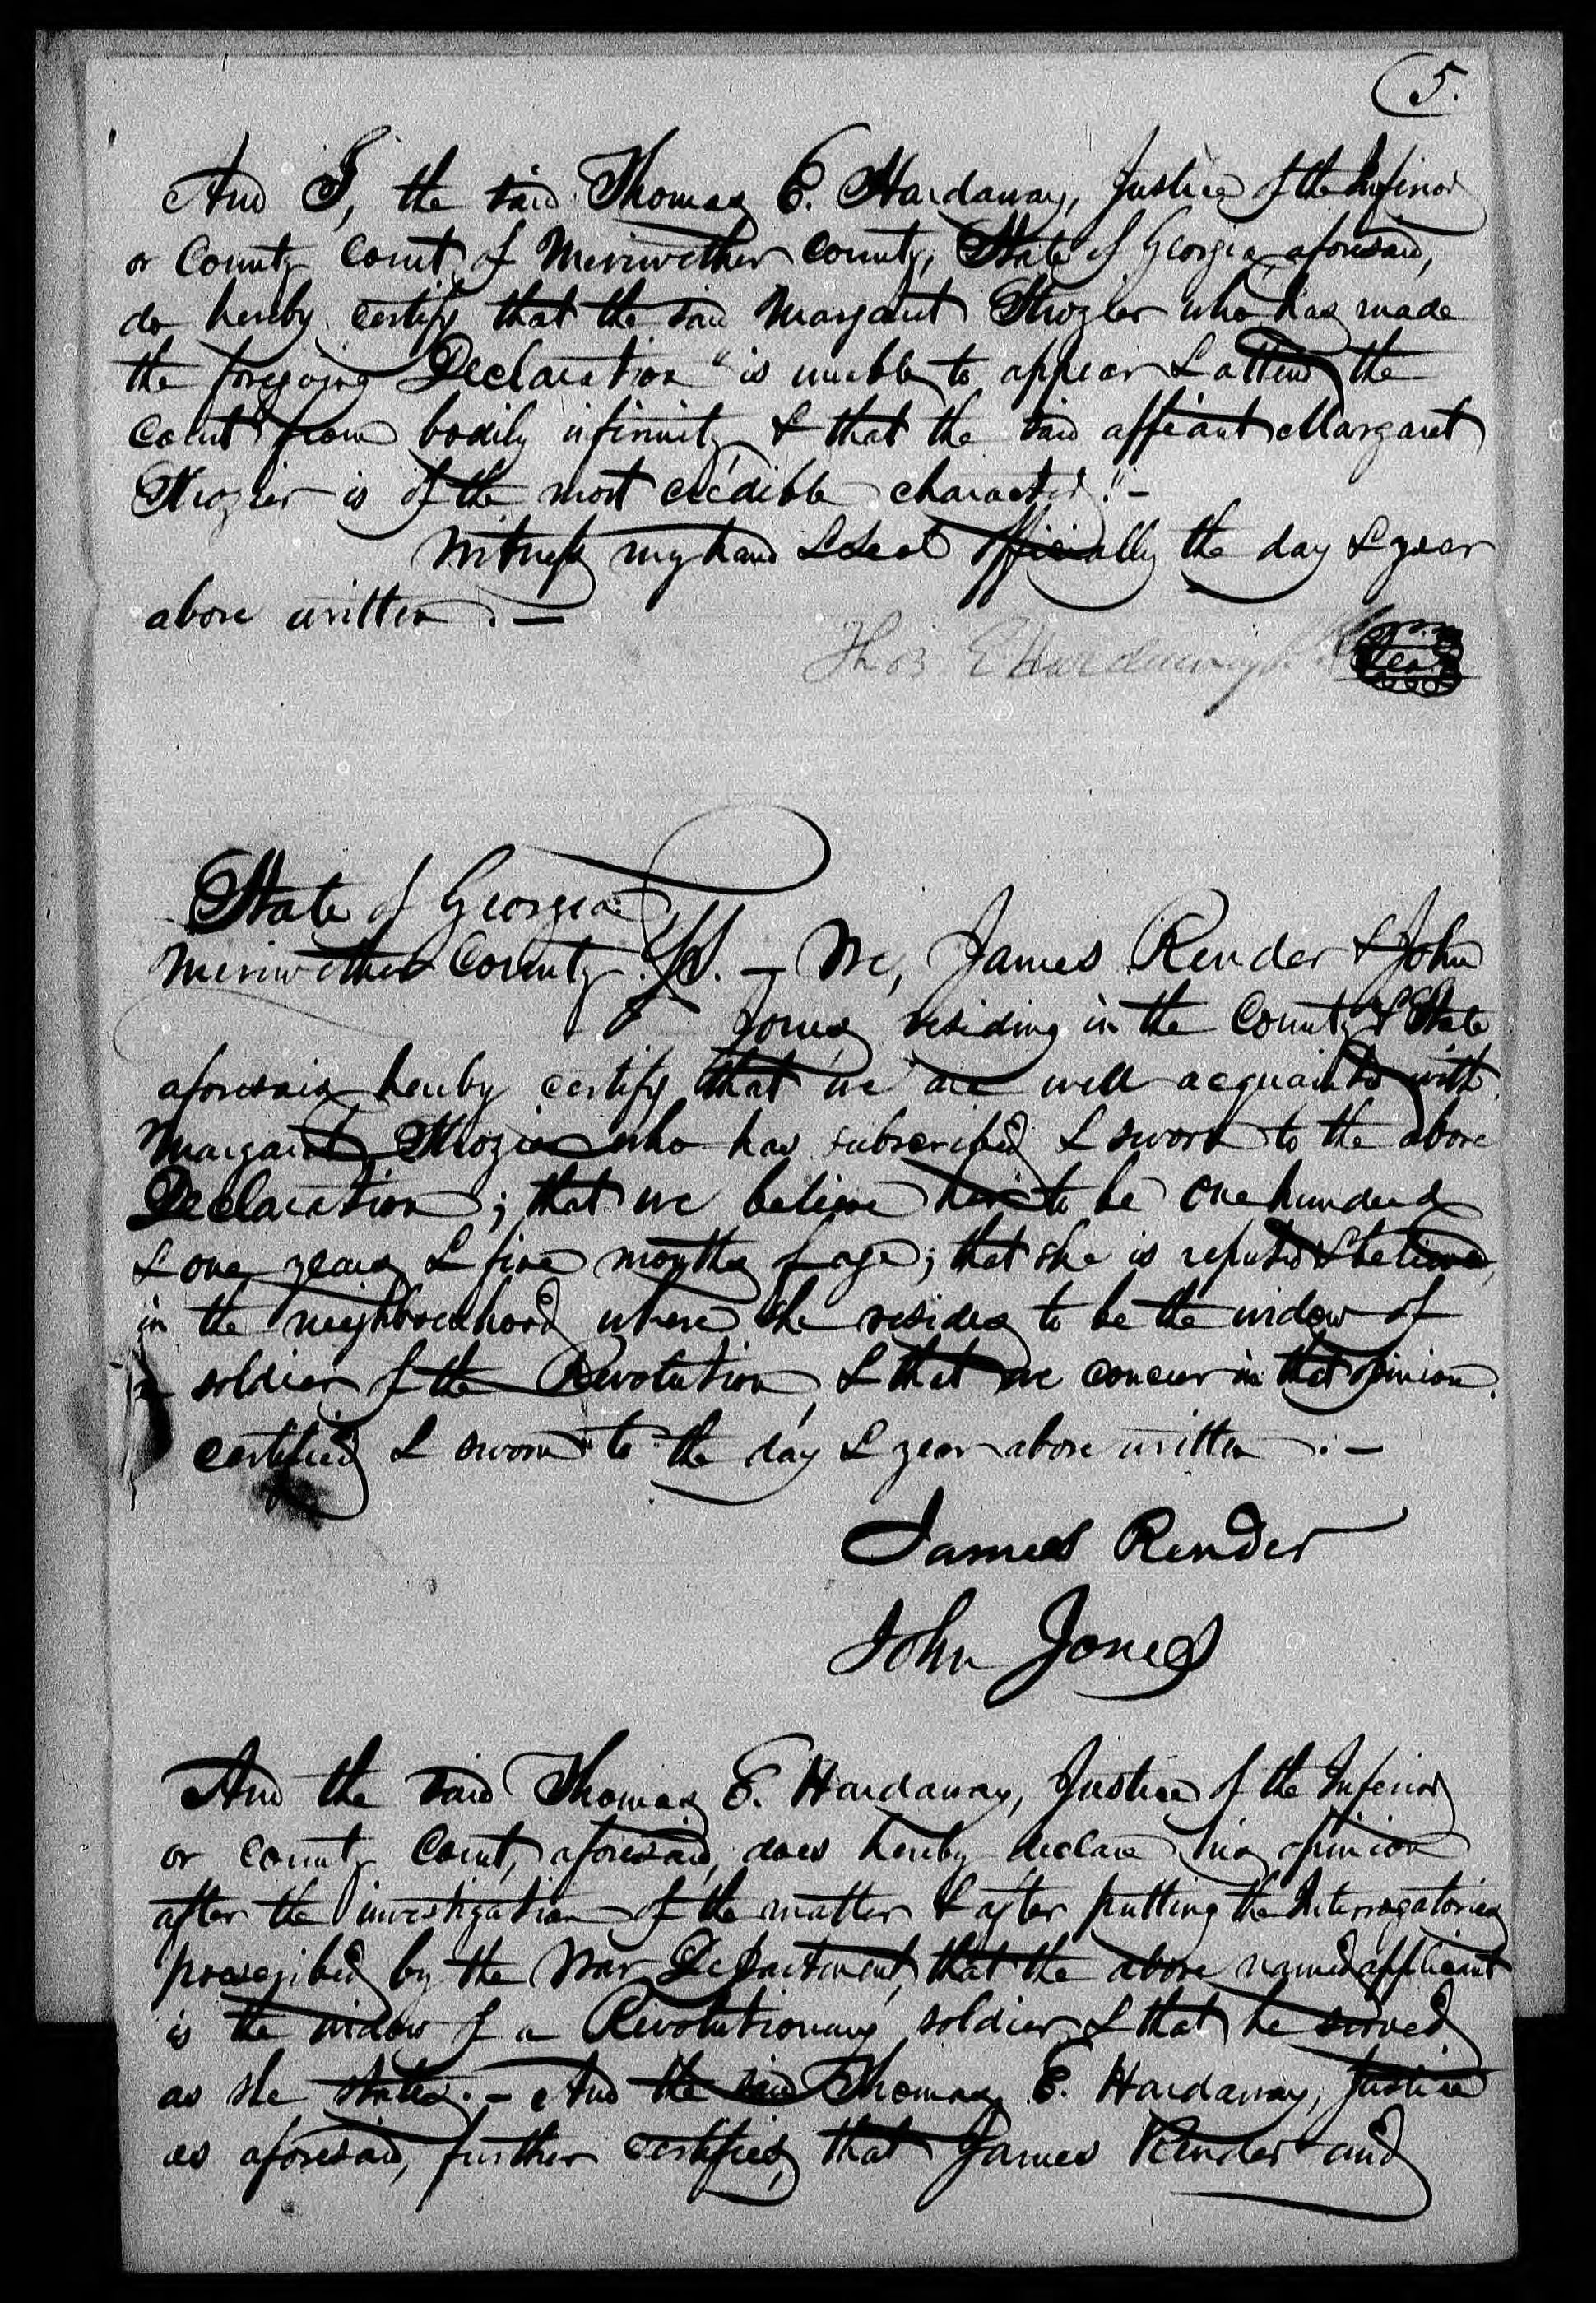 5.
And I, the said Thomas E. Hardaway, Justice of the Inferior
or County Court of Meriwether County, State of Georgia, aforesaid,
do hereby certify that the said Margaret Strozier who has made
the foregoing Declaration "is unable to appear & attend the
Court from bodily infirmity & that the said affiant Margaret
Strozier is of the most credible character." —
Witness my hand & Seal officially the day & year
above written. —
Thos E Hardaway
Seal
State of Georgia
Meriwether County. SS. — We, James Render & John
Jones, residing in the County & State
aforesaid, hereby certify that we are well acquainted with
Margaret Strozier who has subscribed & sworn to the above
Declaration; that we believe her to be one hundred
& one years & five months of age; that she is reputed & believed,
in the neighbourhood where she resides to be the widow of
a soldier of the Revolution, & that we concur in that opinion.
certified & sworn to the day & year above written. —
James Render
John Jones
And the said Thomas E. Hardaway, Justice of the Inferior
or County Court, aforesaid, does hereby declare his opinion
after the investigation of the matter & after putting the Interrogatories
prescribed by the War Department, that the above named applicant
is the widow of a Revolutionary soldier & that he served
as she states. — And the said Thomas E. Hardaway, Justice
as aforesaid, further certifies, that James Render and